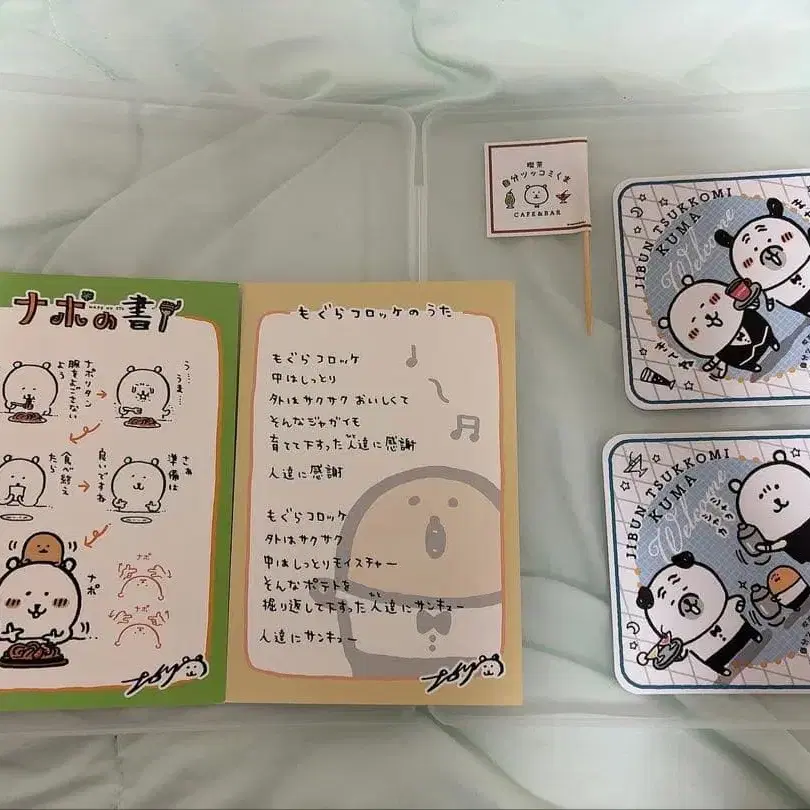 ナポの書
う…
うま…
ナポリタン
服をよごさない
よう
さぁ
準備は
良いですね
食べ終え
たら
ナポ
ナポ
ナポ
もぐらコロッケのうた
もぐらコロッケ
中はしっとり
外はサクサク おいしくて
そんなジャガイモ
育てて下すった人達に感謝
人達に感謝
もぐらコロッケ
外はサクサク
中はしっとりモイスチャー
そんなポテトを
掘り返して下すった人達にサンキュー
人達にサンキュー
喫茶
自分ツッコミくま
CAFE&BAR
JIBUN TSUKKOMI
KUMA
Welcome
JIBUN TSUKKOMI
KUMA
Welcome
シャカ
シャカ